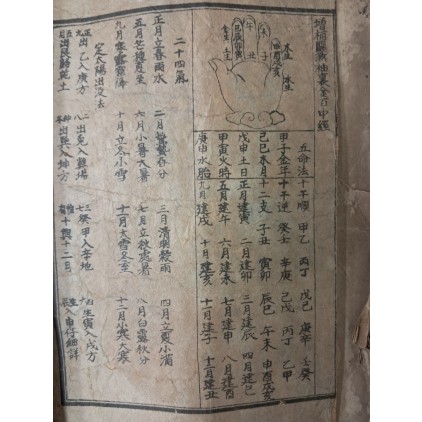 五命法十干順 甲乙 丙丁 戊己 庚辛 壬癸
甲子金年十干逆 癸壬 辛庚 己戊 丁丙 乙甲
己巳木月十二支 子丑 寅卯 辰巳 午未 申酉戌亥
戊申土日正月建寅 二月建卯 三月建辰 四月建巳
甲寅火時五月建午 六月建未 七月建申 八月建酉
庚申水胎九月建戌 十月建亥 十一月建子 十二月建丑
二十四氣
正月立春雨水 二月驚蟄春分 三月清明穀雨 四月立夏小滿
五月芒種夏至 六月小暑大暑 七月立秋處暑 八月白露秋分
九月寒露霜降 十月立冬小雪 十一月大雪冬至 十二月小寒大寒
定太陽出没去
正九出乙入庚方 二八出兎入雞場 三七癸甲入辛地 四六生寅入戌方
五月出艮歸乾土 出巽入坤方 十二日 入車仔細詳